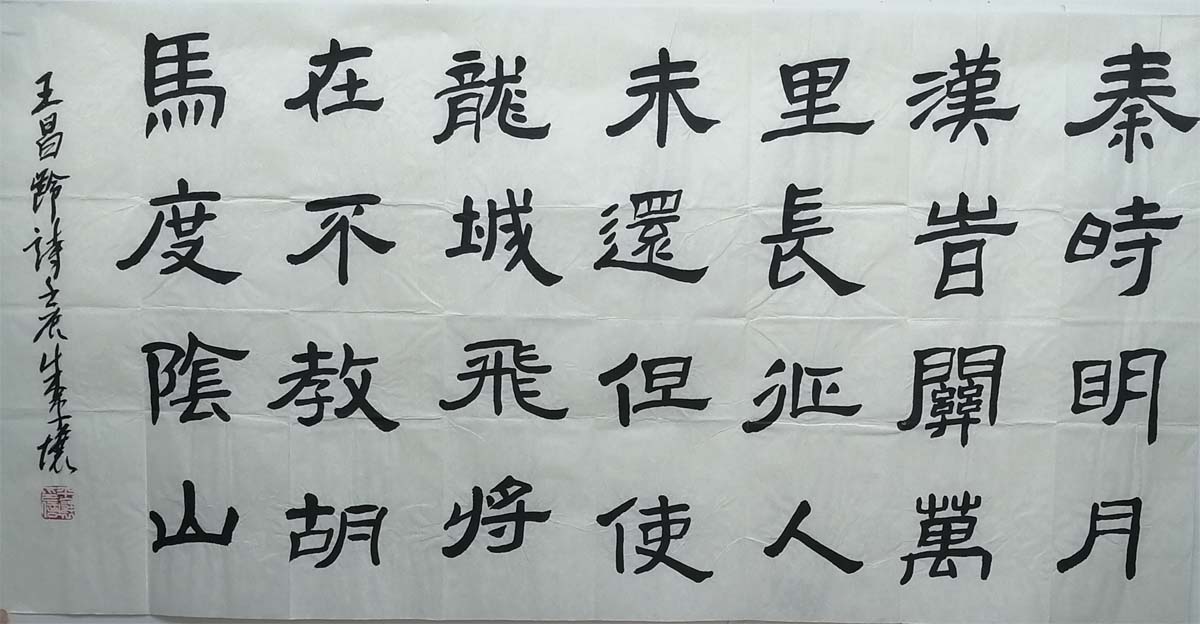 秦時明月
漢旹關萬
里長征人
未還但使
龍城飛将
在不教胡
馬度陰山
王昌齡詩壬辰朱東